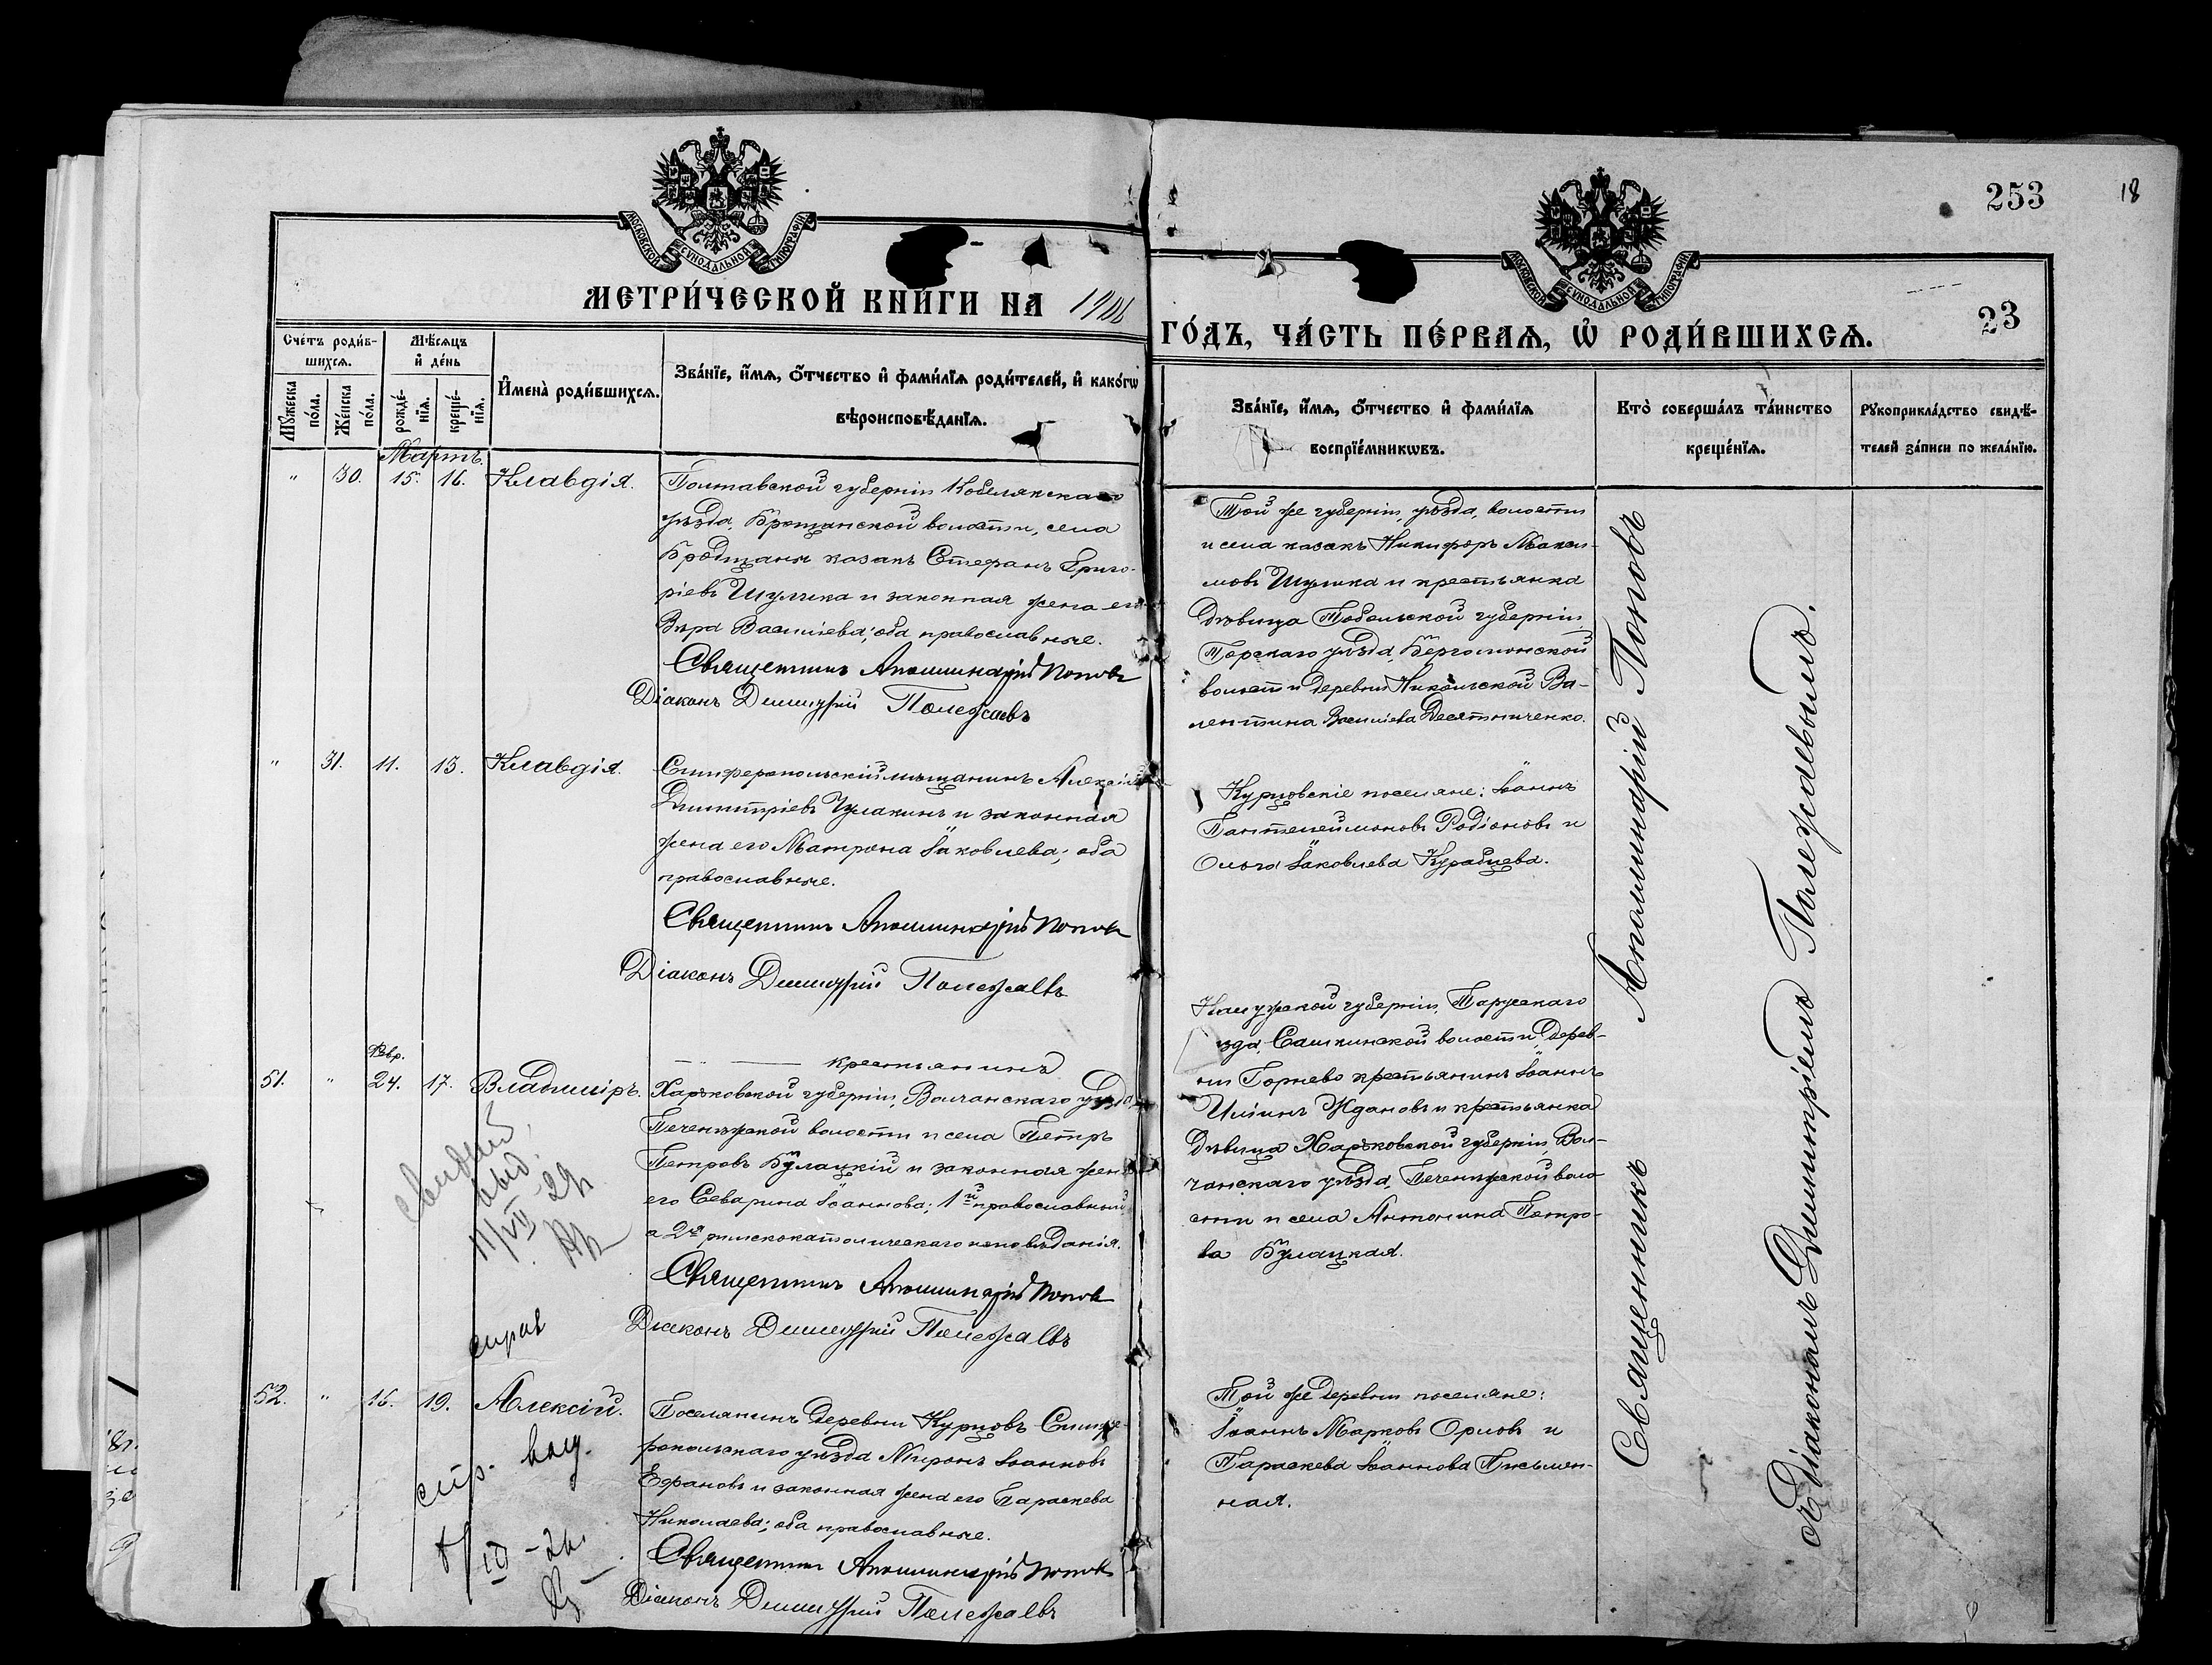 253
18
МОСКОВСКОЙ СѴНОДАЛЬНОЙ ТИПОГРАФІИ
МОСКОВСКОЙ СѴНОДАЛЬНОЙ ТИПОГРАФІИ
МЕТРИ́ЧЕСКОЙ КНИ́ГИ НА 1906
ГО́ДЪ, ЧА́СТЬ ПЕ́РВАѦ, Ѡ РОДИ́ВШИХСѦ.
23
Сче́тъ роди́в-
шихсѧ.
Мꙋ́жеска по́ла.
Же́нска по́ла.
Мѣ́сѧцъ
и҆ де́нь
рожде́-
нїѧ.
креще́-
нїѧ.
И҆мена̀ роди́вшихсѧ.
Зва́нїе, и҆́мѧ, ѻ҆́тчество и҆ фами́лїѧ роди́телей, и҆ како́гѡ
вѣроисповѣ́данїѧ.
Зва́нїе, и҆́мѧ, ѻ҆́тчество и҆ фами́лїѧ
воспрїе́мникѡвъ.
Кто̀ соверша́лъ та́инство
креще́нїѧ.
Рꙋкоприкла́дство свидѣ́-
телей за́писи по жела́нїю.
Мартъ.
" 30. 15. 16. Клавдія.
Полтавской губерніи Кобелякскаго
уѣзда, Бродщанской волости, села
Бродщани казакъ Стефанъ Григо-
ріевъ Шулика и законная жена его
Вѣра Васильева; оба православные.
Священникъ Аполлинарій Поповъ
Діаконъ Димитрій Полежаевъ
Той же губерніи, уѣзда, волости
и села казакъ Никифоръ Макси-
мовъ Шулика и крестьянка
дѣвица Тобольской губерніи,
Тарскаго уѣзда, Бергамакской
волости деревни Никольской Ва-
лентина Васильева Десятниченко.
" 31. 11. 13. Клавдія.
Симферопольскій мѣщанинъ Алексій
Димитріевъ Чулакинъ и законная
жена его Матрона Іаковлева; оба
православные.
Священникъ Аполлинарій Поповъ
Діаконъ Димитрій Полежаевъ
Курцовскіе поселяне: Іоаннъ
Пантелеймоновъ Родіоновъ и
Ольга Іаковлева Курабцева.
Февр.
51. " 24. 17. Владиміръ.
крестьянинъ
Харьковской губерніи, Волчанскаго уѣзда
Печенѣжской волости и села Петръ
Петровъ Булацкій и законная жена
его Северина Іоаннова; 1й православный
а 2я римскокатолическаго исповѣданія.
Священникъ Аполлинарій Поповъ
Діаконъ Димитрій Полежаевъ
Калужской губерніи, Тарусскаго
уѣзда, Сашкинской волости, дерев-
ни Горнево крестьянинъ Іоаннъ
Ильинъ Ждановъ и крестьянка
дѣвица Харьковской губерніи, Вол-
чанскаго уѣзда, Печенѣжской воло-
сти и села Антонина Петро-
ва Булацкая.
справ
52. " 16. 19. Алексій.
Поселянинъ деревни Курцовъ Симфе-
ропольскаго уѣзда Миронъ Іоанновъ
Ефановъ и законная жена его Параскева
Николаева; оба православные.
Священникъ Аполлинарій Поповъ
Діаконъ Димитрій Полежаевъ
Той же деревни поселяне:
Іоаннъ Марковъ Орловъ и
Параскева Іоаннова Письмен-
ная.
Священникъ Аполлинарій Поповъ
съ Діакономъ Димитріемъ Полежаевымъ.